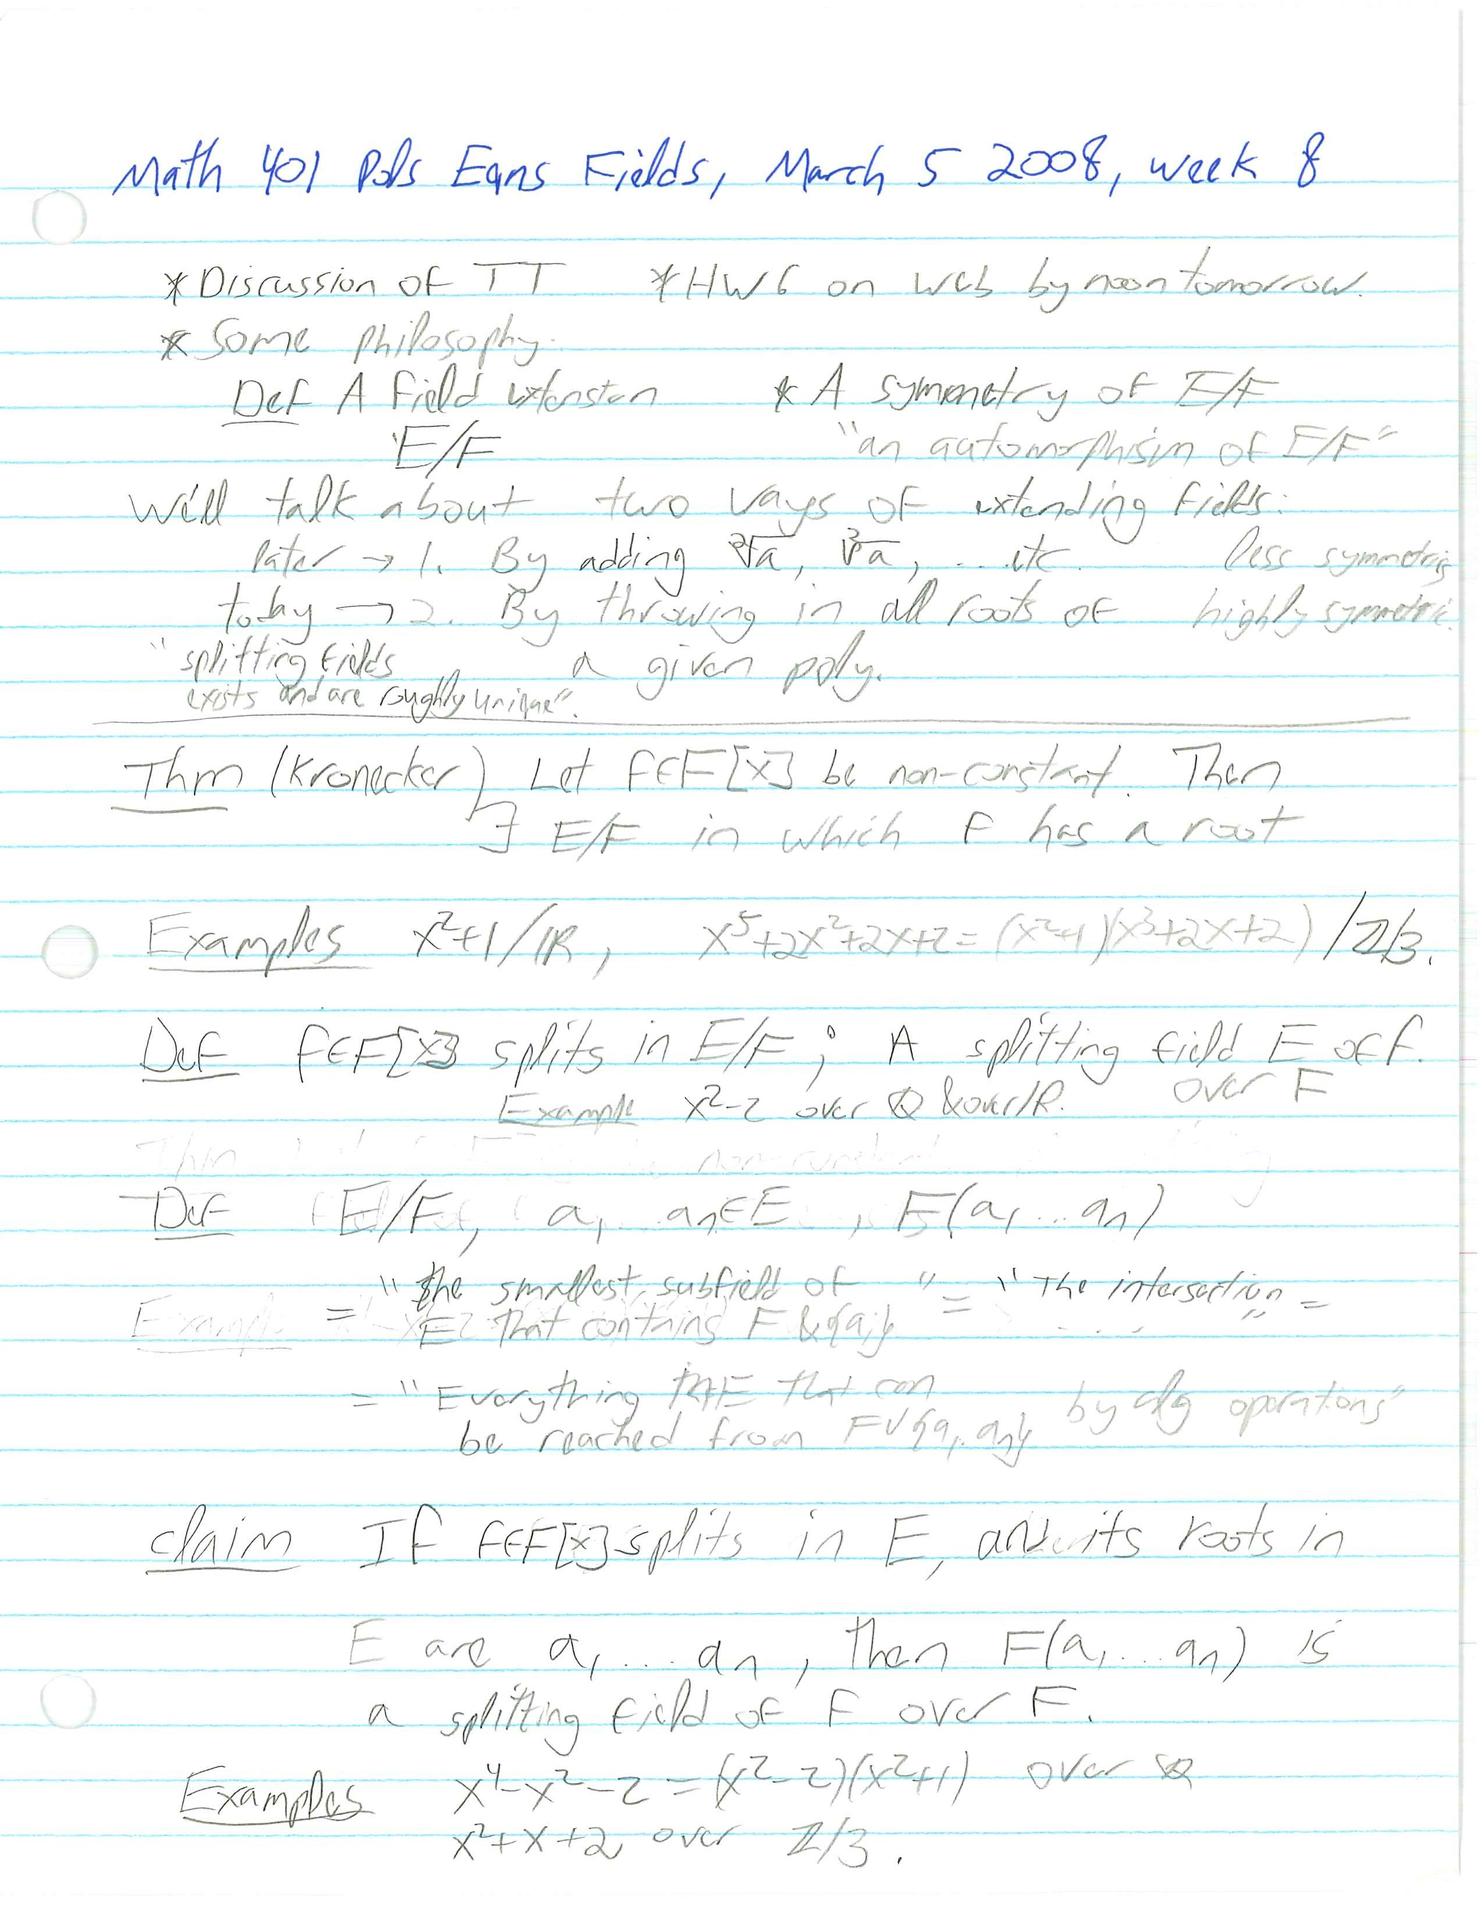 Math 401 Pols Eqns Fields, March 5 2008, week 8
* Discussion of TT * HW6 on web by noon tomorrow.
* Some philosophy.
Def A field extension * A symmetry of E/F
E/F "an automorphism of E/F"
We'll talk about two ways of extending fields:
later → 1. By adding ²√a, ³√a, ... etc. less symmetric
today → 2. By throwing in all roots of highly symmetric.
"splitting fields a given poly.
exists and are roughly unique".
Thm (Kronecker) Let f∈F[x] be non-constant. Then
∃ E/F in which f has a root
Examples x²+1/ℝ, x⁵+2x²+2x+2=(x²+1)(x³+2x+2) /ℤ/3.
Def f∈F[x] splits in E/F; A splitting field E of f.
Example x²-2 over ℚ & over ℝ. over F
Thm non-constant
Def E/F, a₁...aₙ∈E, F(a₁...aₙ)
= "the smallest subfield of " = "The intersection =
Example E that contains F & {aᵢ} ... "
= "Everything in E that can by alg operations"
be reached from F∪{a₁ aₙ}
claim If f∈F[x] splits in E, and its roots in
E are a₁...aₙ, then F(a₁...aₙ) is
a splitting field of f over F.
Examples x⁴-x²-2=(x²-2)(x²+1) over ℚ
x²+x+2 over ℤ/3.